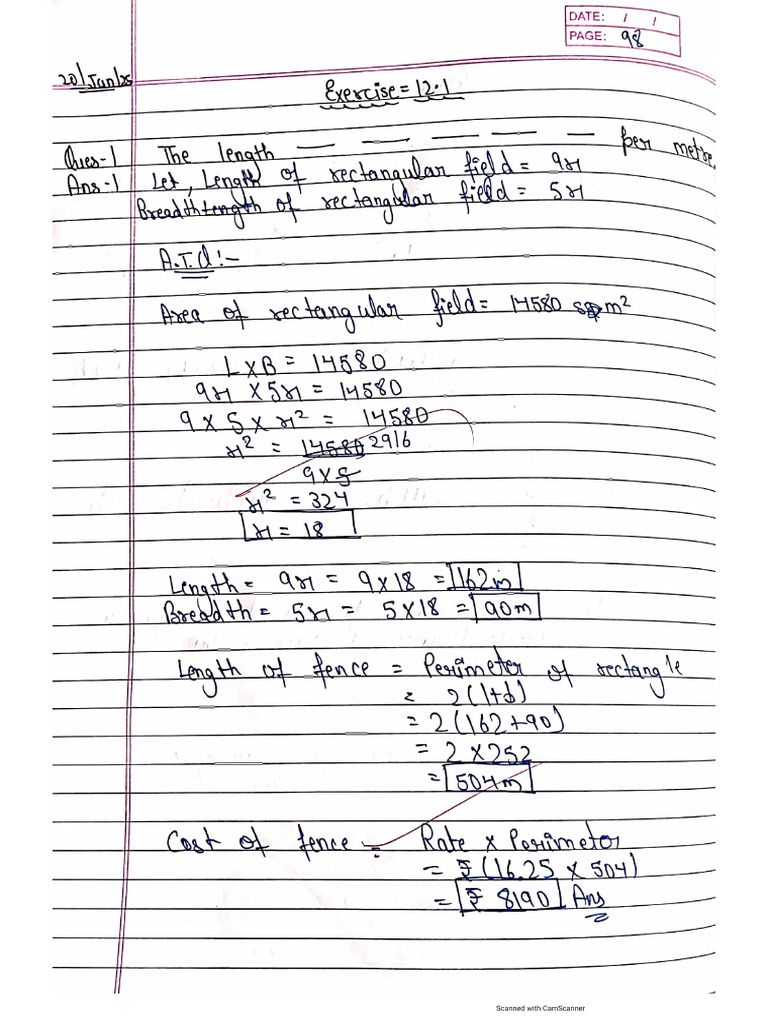 DATE: / /
PAGE: 98
20/Jan/25
Exercise = 12.1
Ques-1 The length — — — — — — per metre.
Ans-1 Let, Length of rectangular field = 9x
Breadth of rectangular field = 5x
A.T.Q:-
Area of rectangular field = 14580 m²
L×B = 14580
9x × 5x = 14580
9 × 5 × x² = 14580
x² = 14580 2916
9×5
x² = 324
x = 18
Length = 9x = 9×18 = 162m
Breadth = 5x = 5×18 = 90m
Length of fence = Perimeter of rectangle
= 2(l+b)
= 2(162+90)
= 2×252
= 504m
Cost of fence = Rate × Perimeter
= ₹(16.25 × 504)
= ₹ 8190 Ans
Scanned with CamScanner